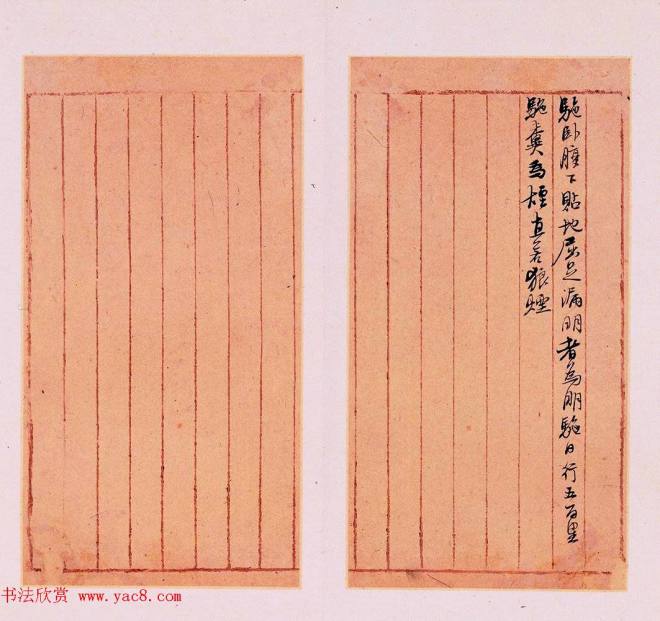 駞卧腹下貼地屈足漏明者為明駞日行五百里
駞糞為煙直若狼煙
书法欣赏 www.yac8.com